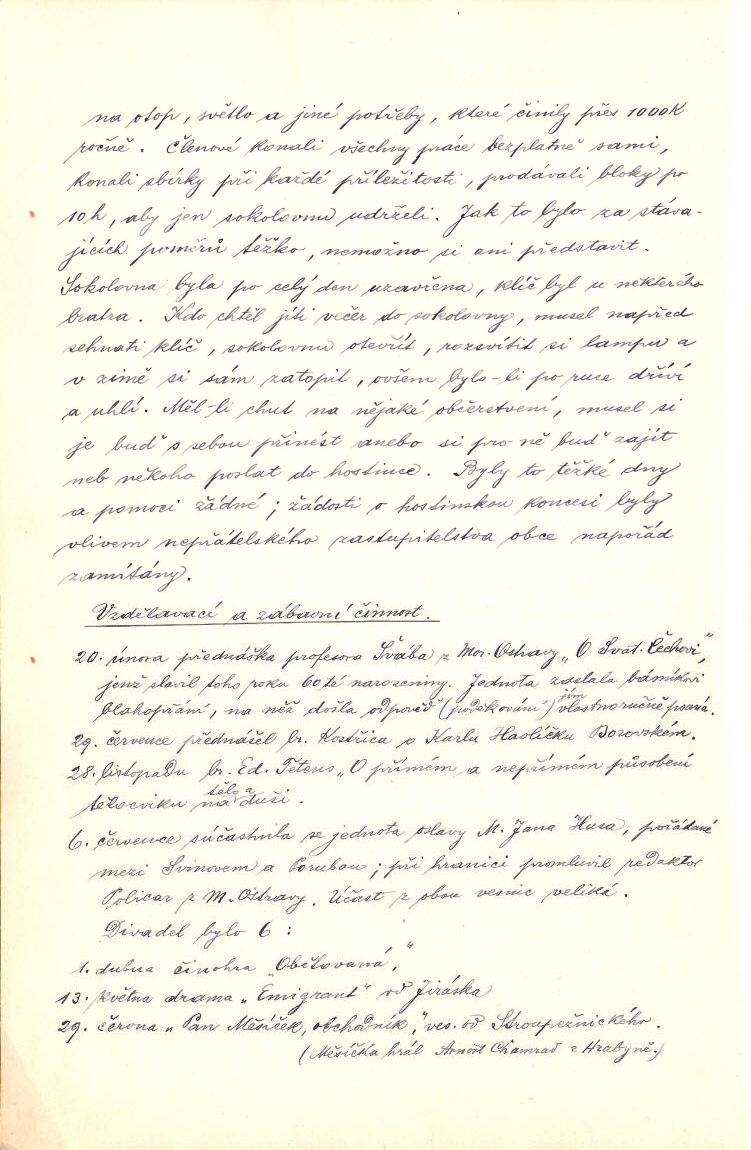 na otop, světlo a jiné potřeby, které činily přes 1000K
ročně. Členové konali všechny práce bezplatně sami,
konali sbírky při každé příležitosti, prodávali bloky po
10 h, aby jen sokolovnu udrželi. Jak to bylo za stáva-
jících poměrů těžko, nemožno si ani představit.
Sokolovna byla po celý den uzavřena, klíč byl u některého
bratra. Kdo chtěl jíti večer do sokolovny, musel napřed
sehnati klíč, sokolovnu otevřít, rozsvítit si lampu a
v zimě si sám zatopit, ovšem bylo-li po ruce dříví
a uhlí. Měl-li chut na nějaké občerstvení, musel si
je buď s sebou přinést anebo si pro ně buď zajít
neb někoho poslat do hostince. Byly to těžké dny
a pomoci žádné; žádosti o hostinskou koncesi byly
vlivem nepřátelského zastupitelstva obce napořád
zamítány.
Vzdělavací a zábavní činnost.
20. února přednáška profesora Švába z Mor. Ostravy „O Svat. Čechovi“,
jenž slavil toho roku 60té narozeniny. Jednota zaslala básníkovi
blahopřání, na něž došla odpověď (poděkování) jím vlastnoručně psaná.
29. července přednášel br. Kostřica o Karlu Havlíčku Borovském.
28. listopadu br. Ed. Tetens „O přímém a nepřímém působení
tělocviku na tělo a duši.
6. července súčastnila se jednota oslavy M. Jana Husa, pořádané
mezi Svinovem a Porubou; při hranici promluvil redaktor
Policar z M. Ostravy. Účast z obou vesnic veliká.
Divadel bylo 6 :
1. dubna činohra „Obětovaná,“
13. května drama „Emigrant“ od Jiráska
29. června „Pan Měsíček, obchodník,“ ves. od Stroupežnického.
(Měsíčka hrál Arnošt Chamrad z Hrabyně.)